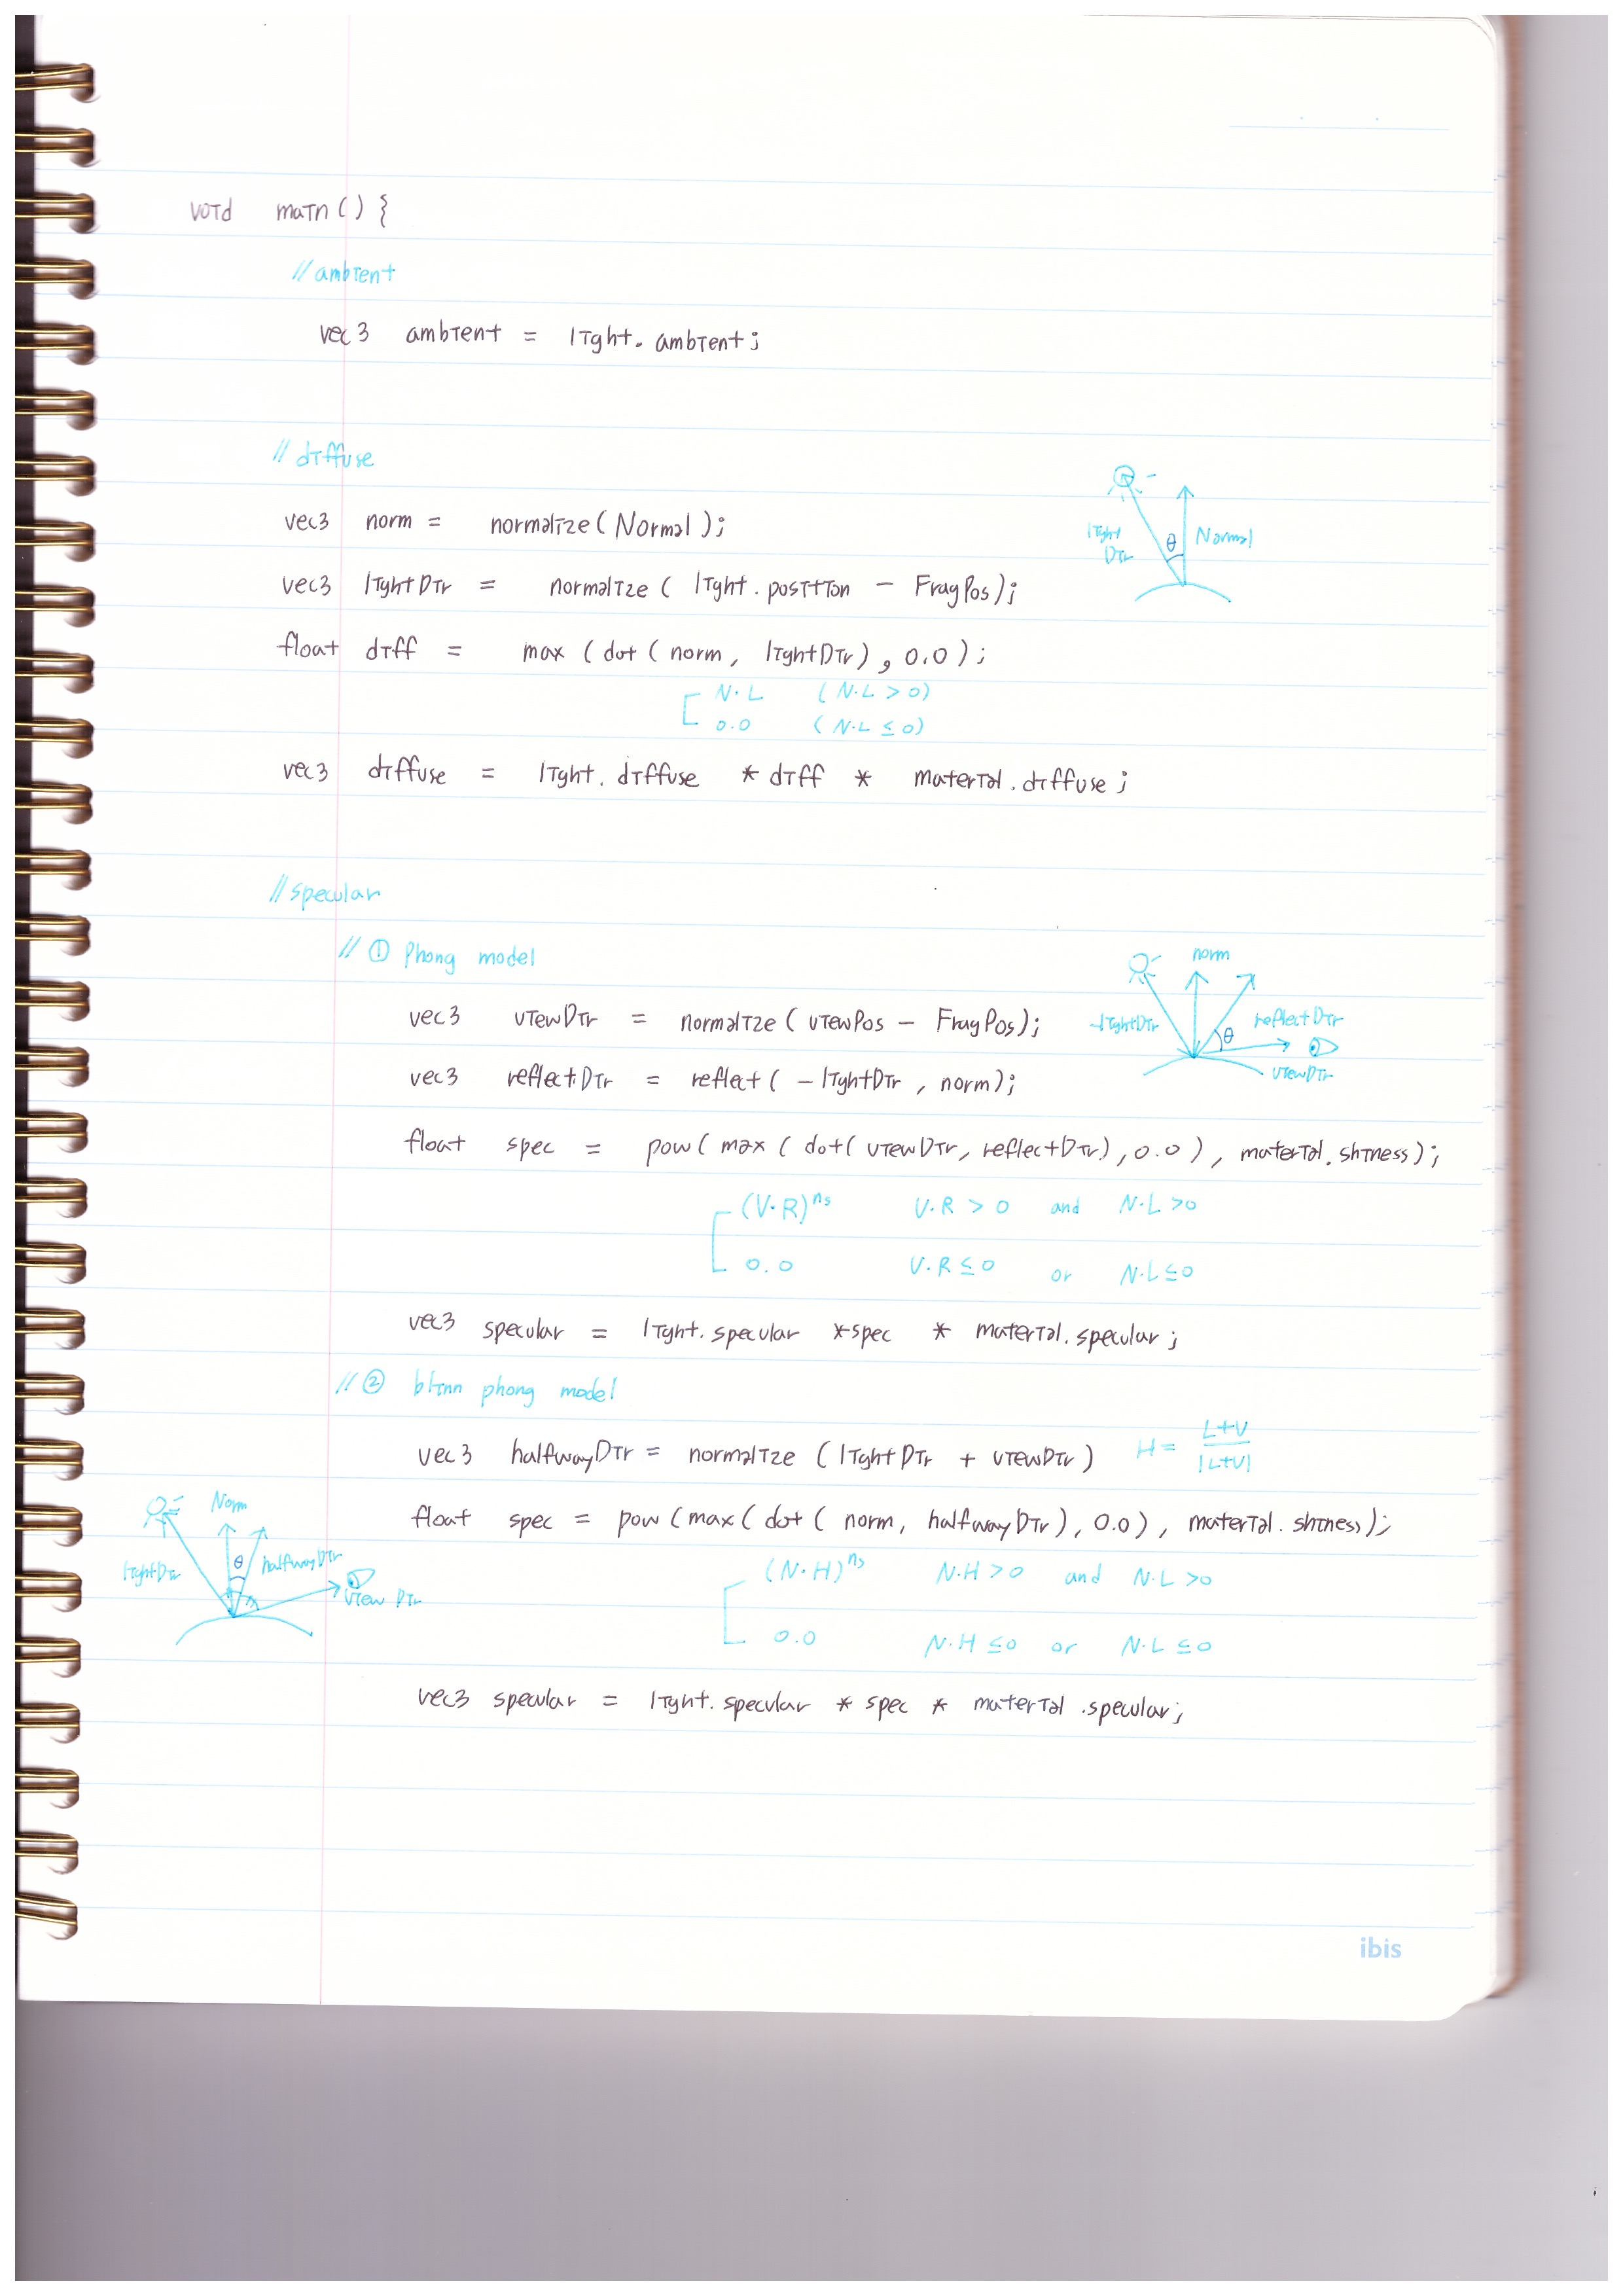 void main() {
//ambient
vec3 ambient = light.ambient;
// diffuse
vec3 norm = normalize(Normal);
light Dir θ Normal
vec3 lightDir = normalize( light.position - FragPos);
float diff = max (dot ( norm, lightDir), 0.0);
N·L (N·L > 0)
0.0 (N·L ≤ 0)
vec3 diffuse = light.diffuse * diff * material.diffuse;
//specular
// ① Phong model
norm
vec3 viewDir = normalize( viewPos - FragPos);
-lightDir θ reflectDir
viewDir
vec3 reflectDir = reflect( -lightDir, norm);
float spec = pow( max ( dot( viewDir, reflectDir), 0.0), material.shiness);
(V·R)^ns V·R > 0 and N·L >0
0.0 V·R ≤ 0 or N·L ≤ 0
vec3 specular = light.specular *spec * material.specular;
// ② blinn phong model
vec3 halfwayDir = normalize (lightDir + viewDir) H = L+V / |L+V|
float spec = pow (max( dot ( norm, halfwayDir), 0.0), material.shiness);
Norm
lightDir θ halfwayDir
view Dir
(N·H)^ns N·H > 0 and N·L >0
0.0 N·H ≤0 or N·L ≤ 0
vec3 specular = light.specular * spec * material.specular;
ibis